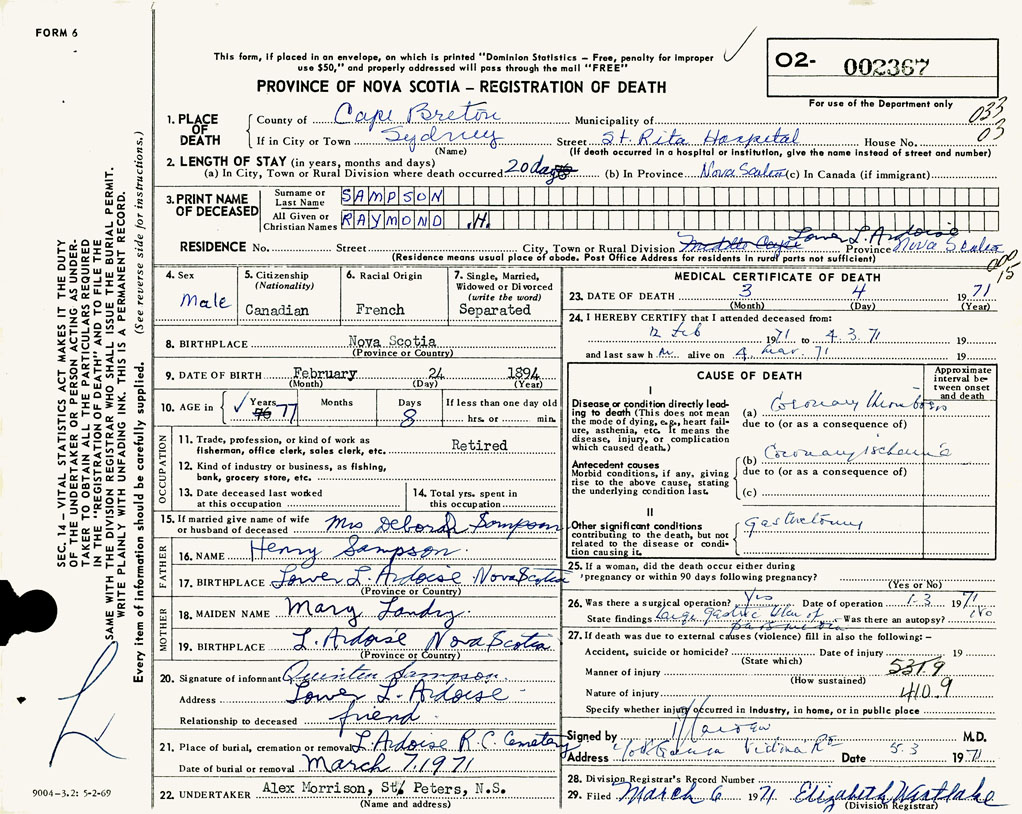 FORM 6
This form, if placed in an envelope, on which is printed "Dominion Statistics – Free, penalty for improper
use $50," and properly addressed will pass through the mail "FREE"
O2- 002367
For use of the Department only
PROVINCE OF NOVA SCOTIA – REGISTRATION OF DEATH
033
03
1. PLACE OF DEATH
County of Cape Breton Municipality of
If in City or Town Sydney Street St. Rita Hospital House No.
(Name) (If death occurred in a hospital or institution, give the name instead of street and number)
2. LENGTH OF STAY (in years, months and days)
(a) In City, Town or Rural Division where death occurred 20 days (b) In Province Nova Scotia (c) In Canada (if immigrant)
3. PRINT NAME OF DECEASED
Surname or Last Name SAMPSON
All Given or Christian Names RAYMOND .H.
RESIDENCE No. Street City, Town or Rural Division Lower L. Ardoise Province Nova Scotia
(Residence means usual place of abode. Post Office Address for residents in rural parts not sufficient)
000
15
4. Sex Male
5. Citizenship (Nationality) Canadian
6. Racial Origin French
7. Single, Married, Widowed or Divorced (write the word) Separated
8. BIRTHPLACE Nova Scotia
(Province or Country)
9. DATE OF BIRTH February 24 1894
(Month) (Day) (Year)
10. AGE in ✓ Years 76 77 Months Days 8 If less than one day old
hrs. or min.
OCCUPATION
11. Trade, profession, or kind of work as fisherman, office clerk, sales clerk, etc. Retired
12. Kind of industry or business, as fishing, bank, grocery store, etc.
13. Date deceased last worked at this occupation
14. Total yrs. spent in this occupation
15. If married give name of wife or husband of deceased Mrs Deborah Sampson
FATHER
16. NAME Henry Sampson
17. BIRTHPLACE Lower L. Ardoise Nova Scotia
(Province or Country)
MOTHER
18. MAIDEN NAME Mary Landry
19. BIRTHPLACE L. Ardoise Nova Scotia
(Province or Country)
20. Signature of informant Quinten Sampson
Address Lower L. Ardoise
Relationship to deceased friend
21. Place of burial, cremation or removal L. Ardoise R.C. Cemetery
Date of burial or removal March 7, 1971
22. UNDERTAKER Alex Morrison, St. Peters, N.S.
(Name and address)
MEDICAL CERTIFICATE OF DEATH
23. DATE OF DEATH 3 4 1971
(Month) (Day) (Year)
24. I HEREBY CERTIFY that I attended deceased from:
12 Feb 1971 to 4.3.71 19
and last saw h alive on 4 Mar. 71 19
CAUSE OF DEATH
Approximate interval between onset and death
I
Disease or condition directly leading to death (This does not mean the mode of dying, e.g., heart failure, asthenia, etc. It means the disease, injury, or complication which caused death.)
(a) Coronary thrombosis
due to (or as a consequence of)
Antecedent causes
Morbid conditions, if any, giving rise to the above cause, stating the underlying condition last.
(b) Coronary ischemia
due to (or as a consequence of)
(c)
II
Other significant conditions contributing to the death, but not related to the disease or condition causing it.
Gastrectomy
25. If a woman, did the death occur either during pregnancy or within 90 days following pregnancy?
(Yes or No)
26. Was there a surgical operation? Yes Date of operation 1-3 1971
State findings Large gastric Ulcer Was there an autopsy? no
27. If death was due to external causes (violence) fill in also the following: –
Accident, suicide or homicide? Date of injury 19
(State which)
Manner of injury 5319
(How sustained)
Nature of injury 410.9
Specify whether injury occurred in Industry, in home, or in public place
Signed by M.D.
Address Victoria Rd Date 5.3 1971
28. Division Registrar's Record Number
29. Filed March 6 1971 Elizabeth Westlake
(Division Registrar)
SEC. 14 – VITAL STATISTICS ACT MAKES IT THE DUTY
OF THE UNDERTAKER OR PERSON ACTING AS UNDER-
TAKER TO OBTAIN ALL THE PARTICULARS REQUIRED
IN THE "REGISTRATION OF DEATH" AND TO FILE THE
SAME WITH THE DIVISION REGISTRAR WHO SHALL ISSUE THE BURIAL PERMIT.
WRITE PLAINLY WITH UNFADING INK. THIS IS A PERMANENT RECORD.
Every item of information should be carefully supplied. (See reverse side for instructions.)
9004–3.2: 5-2-69